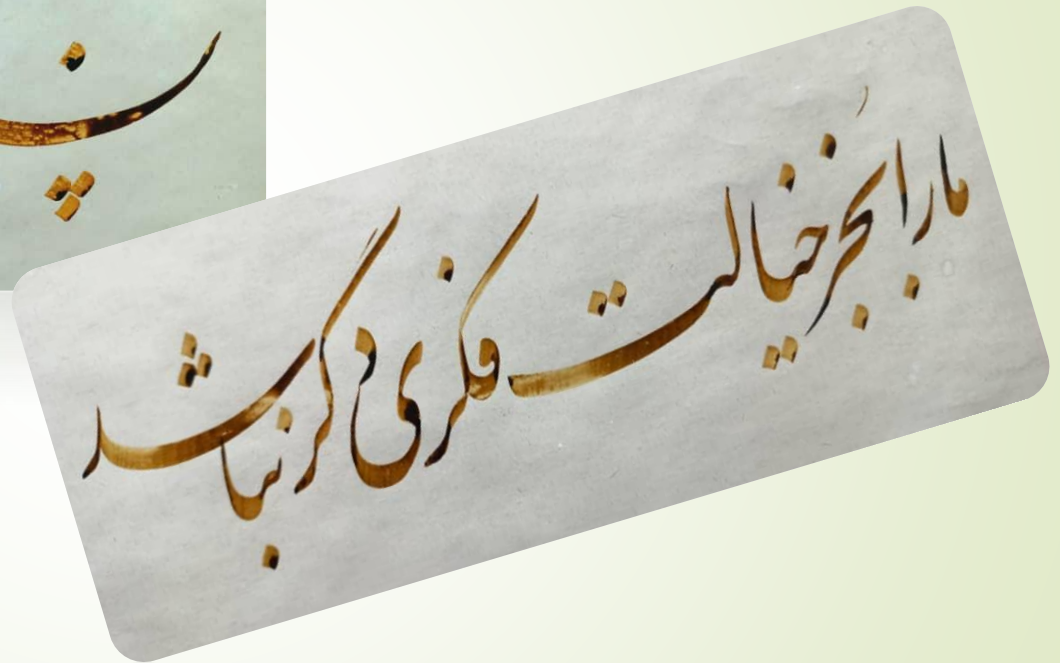 ما را بجز خیالت فکری دگر نباشد